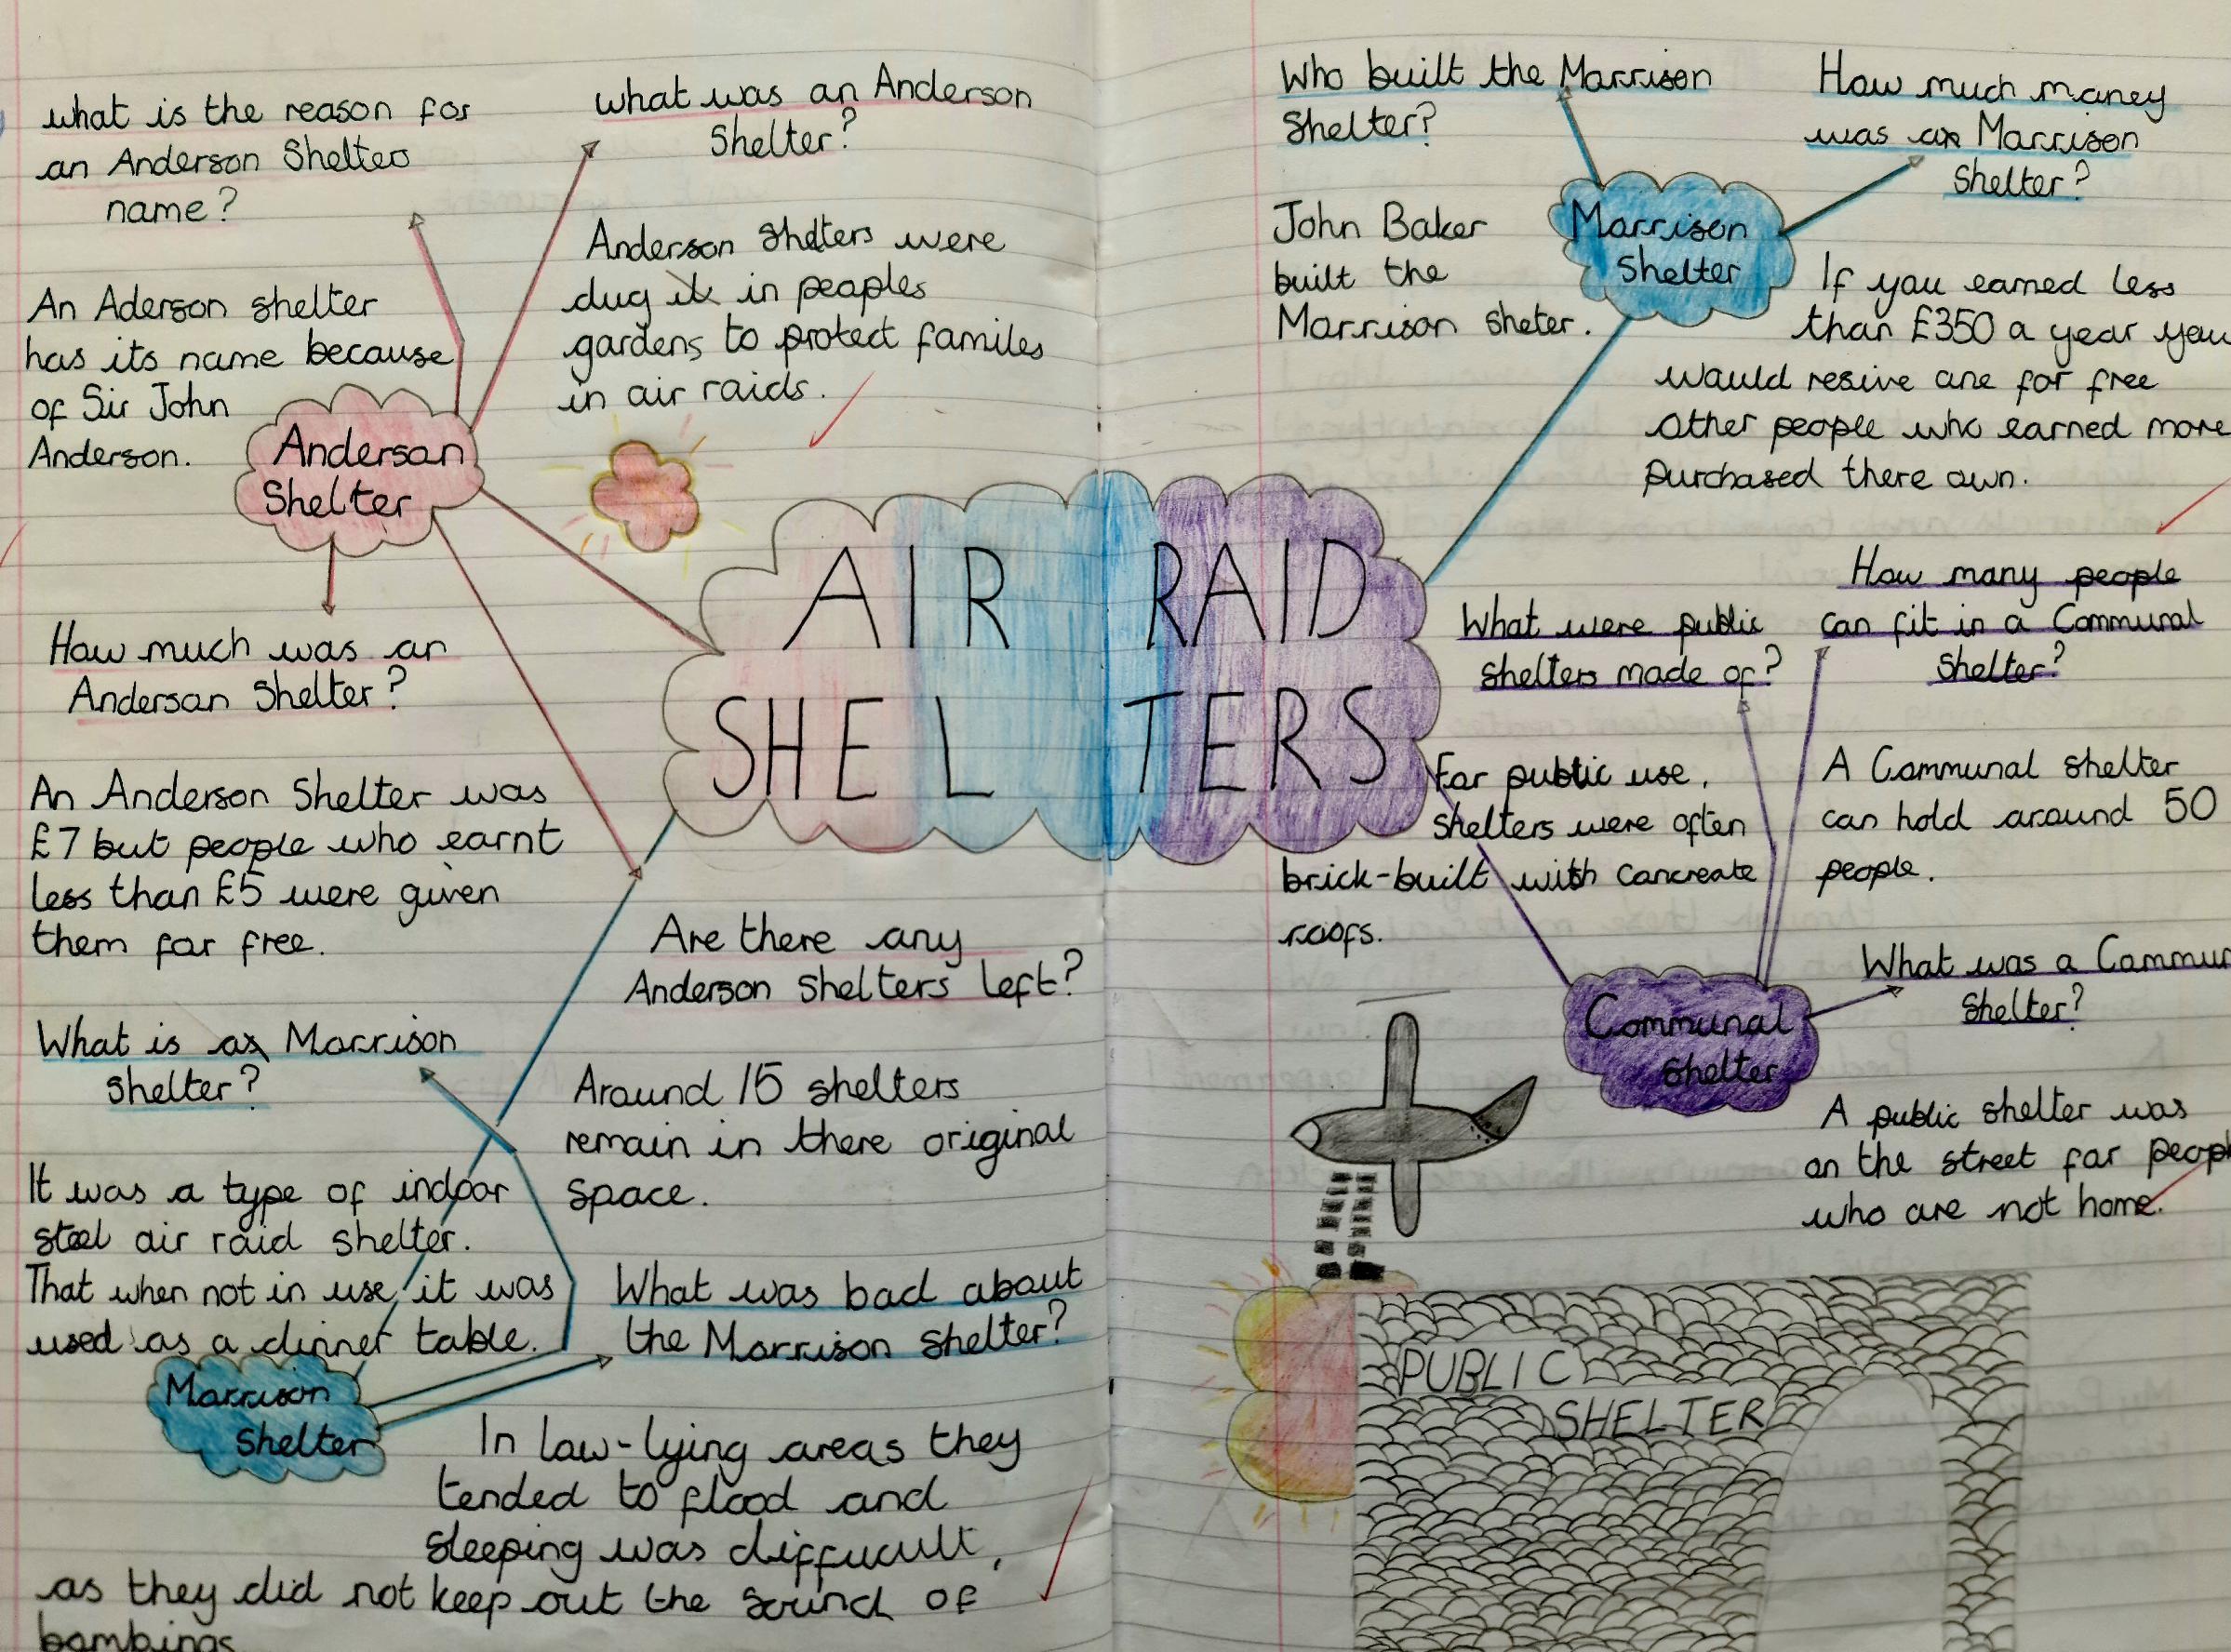 what is the reason for
an Anderson Shelters
name?
An Aderson shelter
has its name because
of Sir John
Anderson.
Anderson
Shelter
what was an Anderson
Shelter?
Anderson shelters were
dug in peoples
gardens to protect familes
in air raids.
How much was an
Anderson Shelter?
An Anderson Shelter was
£7 but people who earnt
less than £5 were given
them for free.
Are there any
Anderson Shelters left?
Around 15 shelters
remain in there original
space.
What is a Morrison
Shelter?
It was a type of indoor
steel air raid shelter.
That when not in use it was
used as a dinner table.
Morrison
Shelter
What was bad about
the Morrison Shelter?
In low-lying areas they
tended to flood and
sleeping was difficult,
as they did not keep out the sound of
bombings
AIR RAID
SHELTERS
Who built the Morrison
Shelter?
John Baker
built the
Morrison sheter.
Morrison
Shelter
How much money
was a Morrison
Shelter?
If you earned less
than £350 a year you
would resive one for free
other people who earned more
purchased there own.
What were public
shelters made of?
For public use,
shelters were often
brick-built with concreate
roofs.
How many people
can fit in a Communal
Shelter?
A Communal shelter
can hold around 50
people.
Communal
Shelter
What was a Commun
Shelter?
A public shelter was
on the street for peopl
who are not home.
PUBLIC
SHELTER